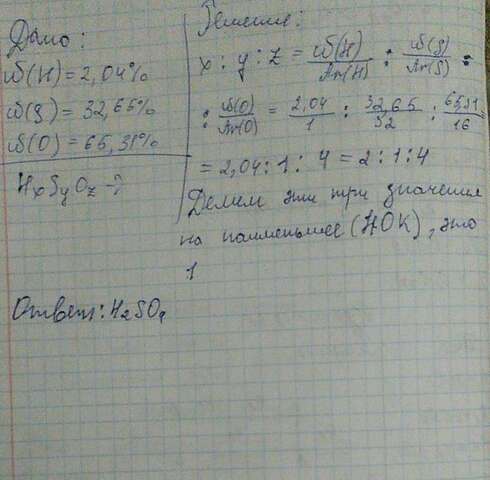 Дано:
ω(H)=2,04%
ω(S)=32,65%
ω(O)=65,31%
HxSyOz-?
Решение:
x:y:z = ω(H)/Ar(H) : ω(S)/Ar(S) :
: ω(O)/Ar(O) = 2,04/1 : 32,65/32 : 65,31/16
= 2,04:1:4 = 2:1:4
Делим эти три значения
на наименьшее (НОК), это
1
Ответ: H2SO4